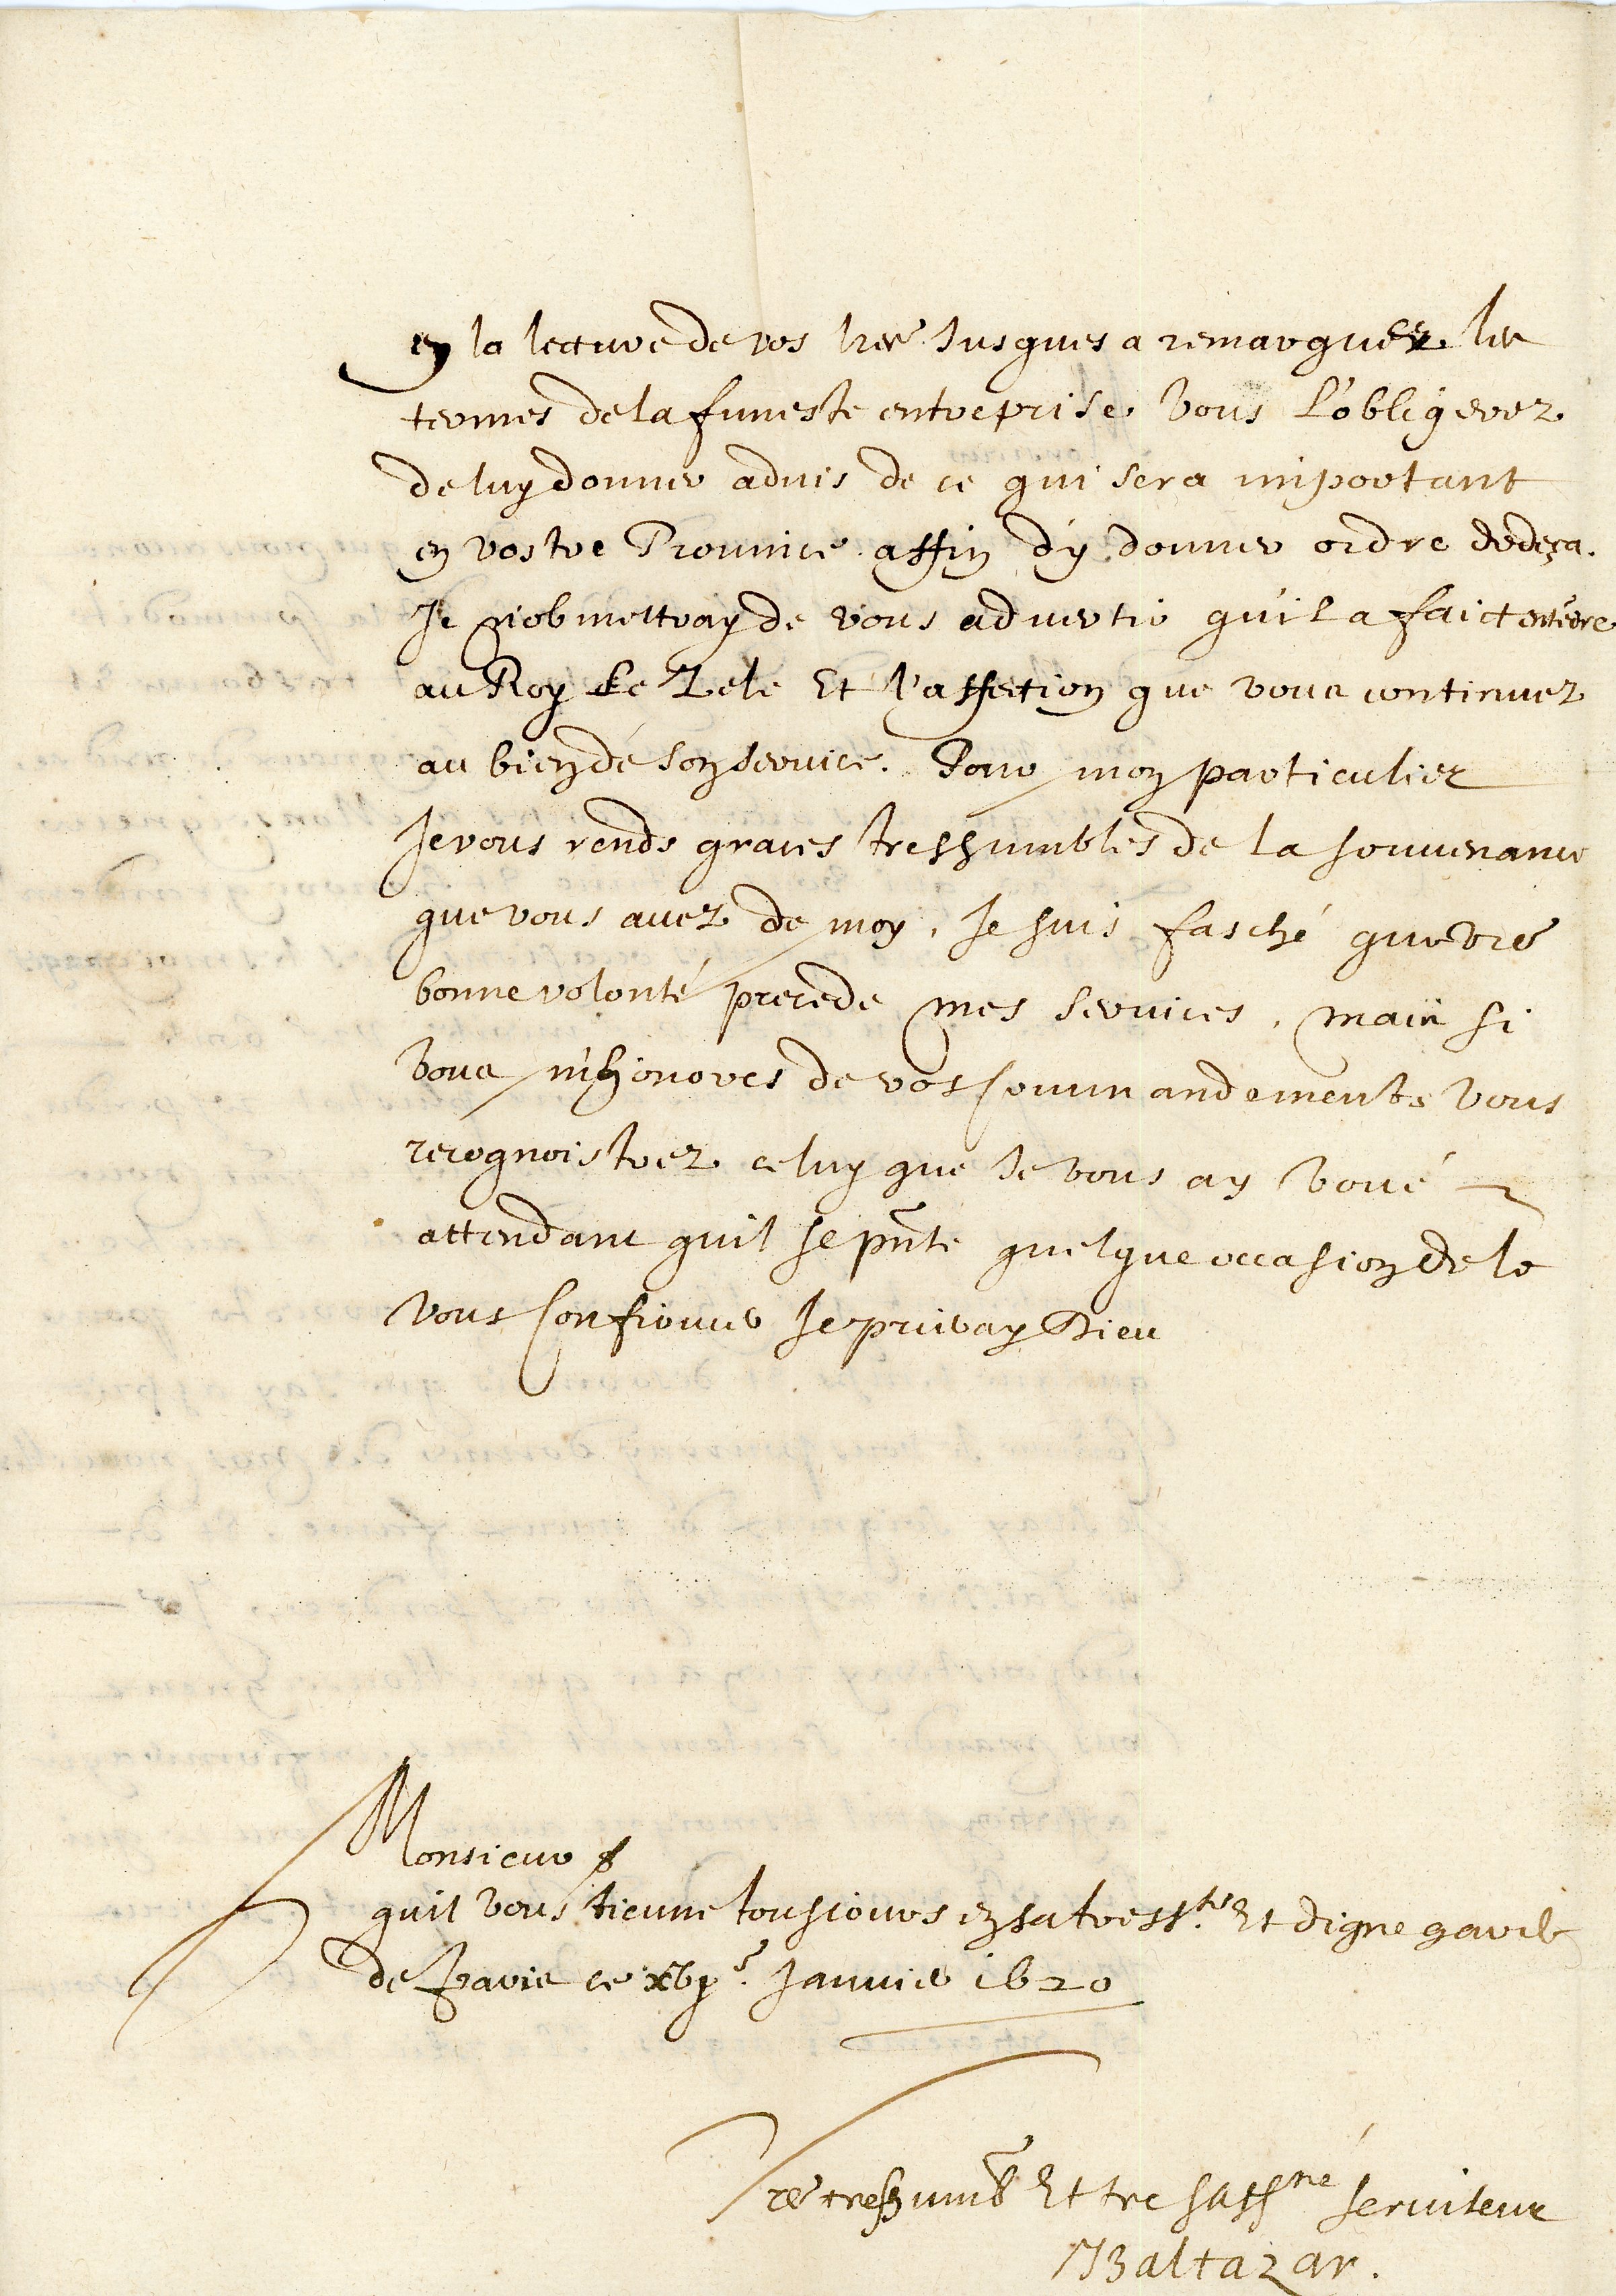 en la lecture de vos lres Jusques a remarquer les
termes de la funeste entreprise. Vous L'obligerez
de luy donner aduis de ce qui sera important
en vostre Prouince affin d'y donner ordre dedeça.
Je n'obmettray de vous aduertir qu'il a faict entẽdre
au Roy Le Zele Et l'affection que vous continuez
au bien de son seruice. Pour mon particulier
Je vous rends graces treshumbles de la souuenance
que vous auez de moy, Je suis fasché que vre
bonne volonté precede mes seruices, mais si
Vous m'honores de vos Commandements Vous
recognoistrez celuy que Je vous ay Voué
attendant quil se pñte quelque occasion de le
Vous Confirmer Je prieray Dieu
Monsieur
quil Vous tienne tousiours en sa tresste Et digne garde
de Paris ce xvje Januier 1620
Vre treshumb Et tresaffné seruiteur
Baltazar.